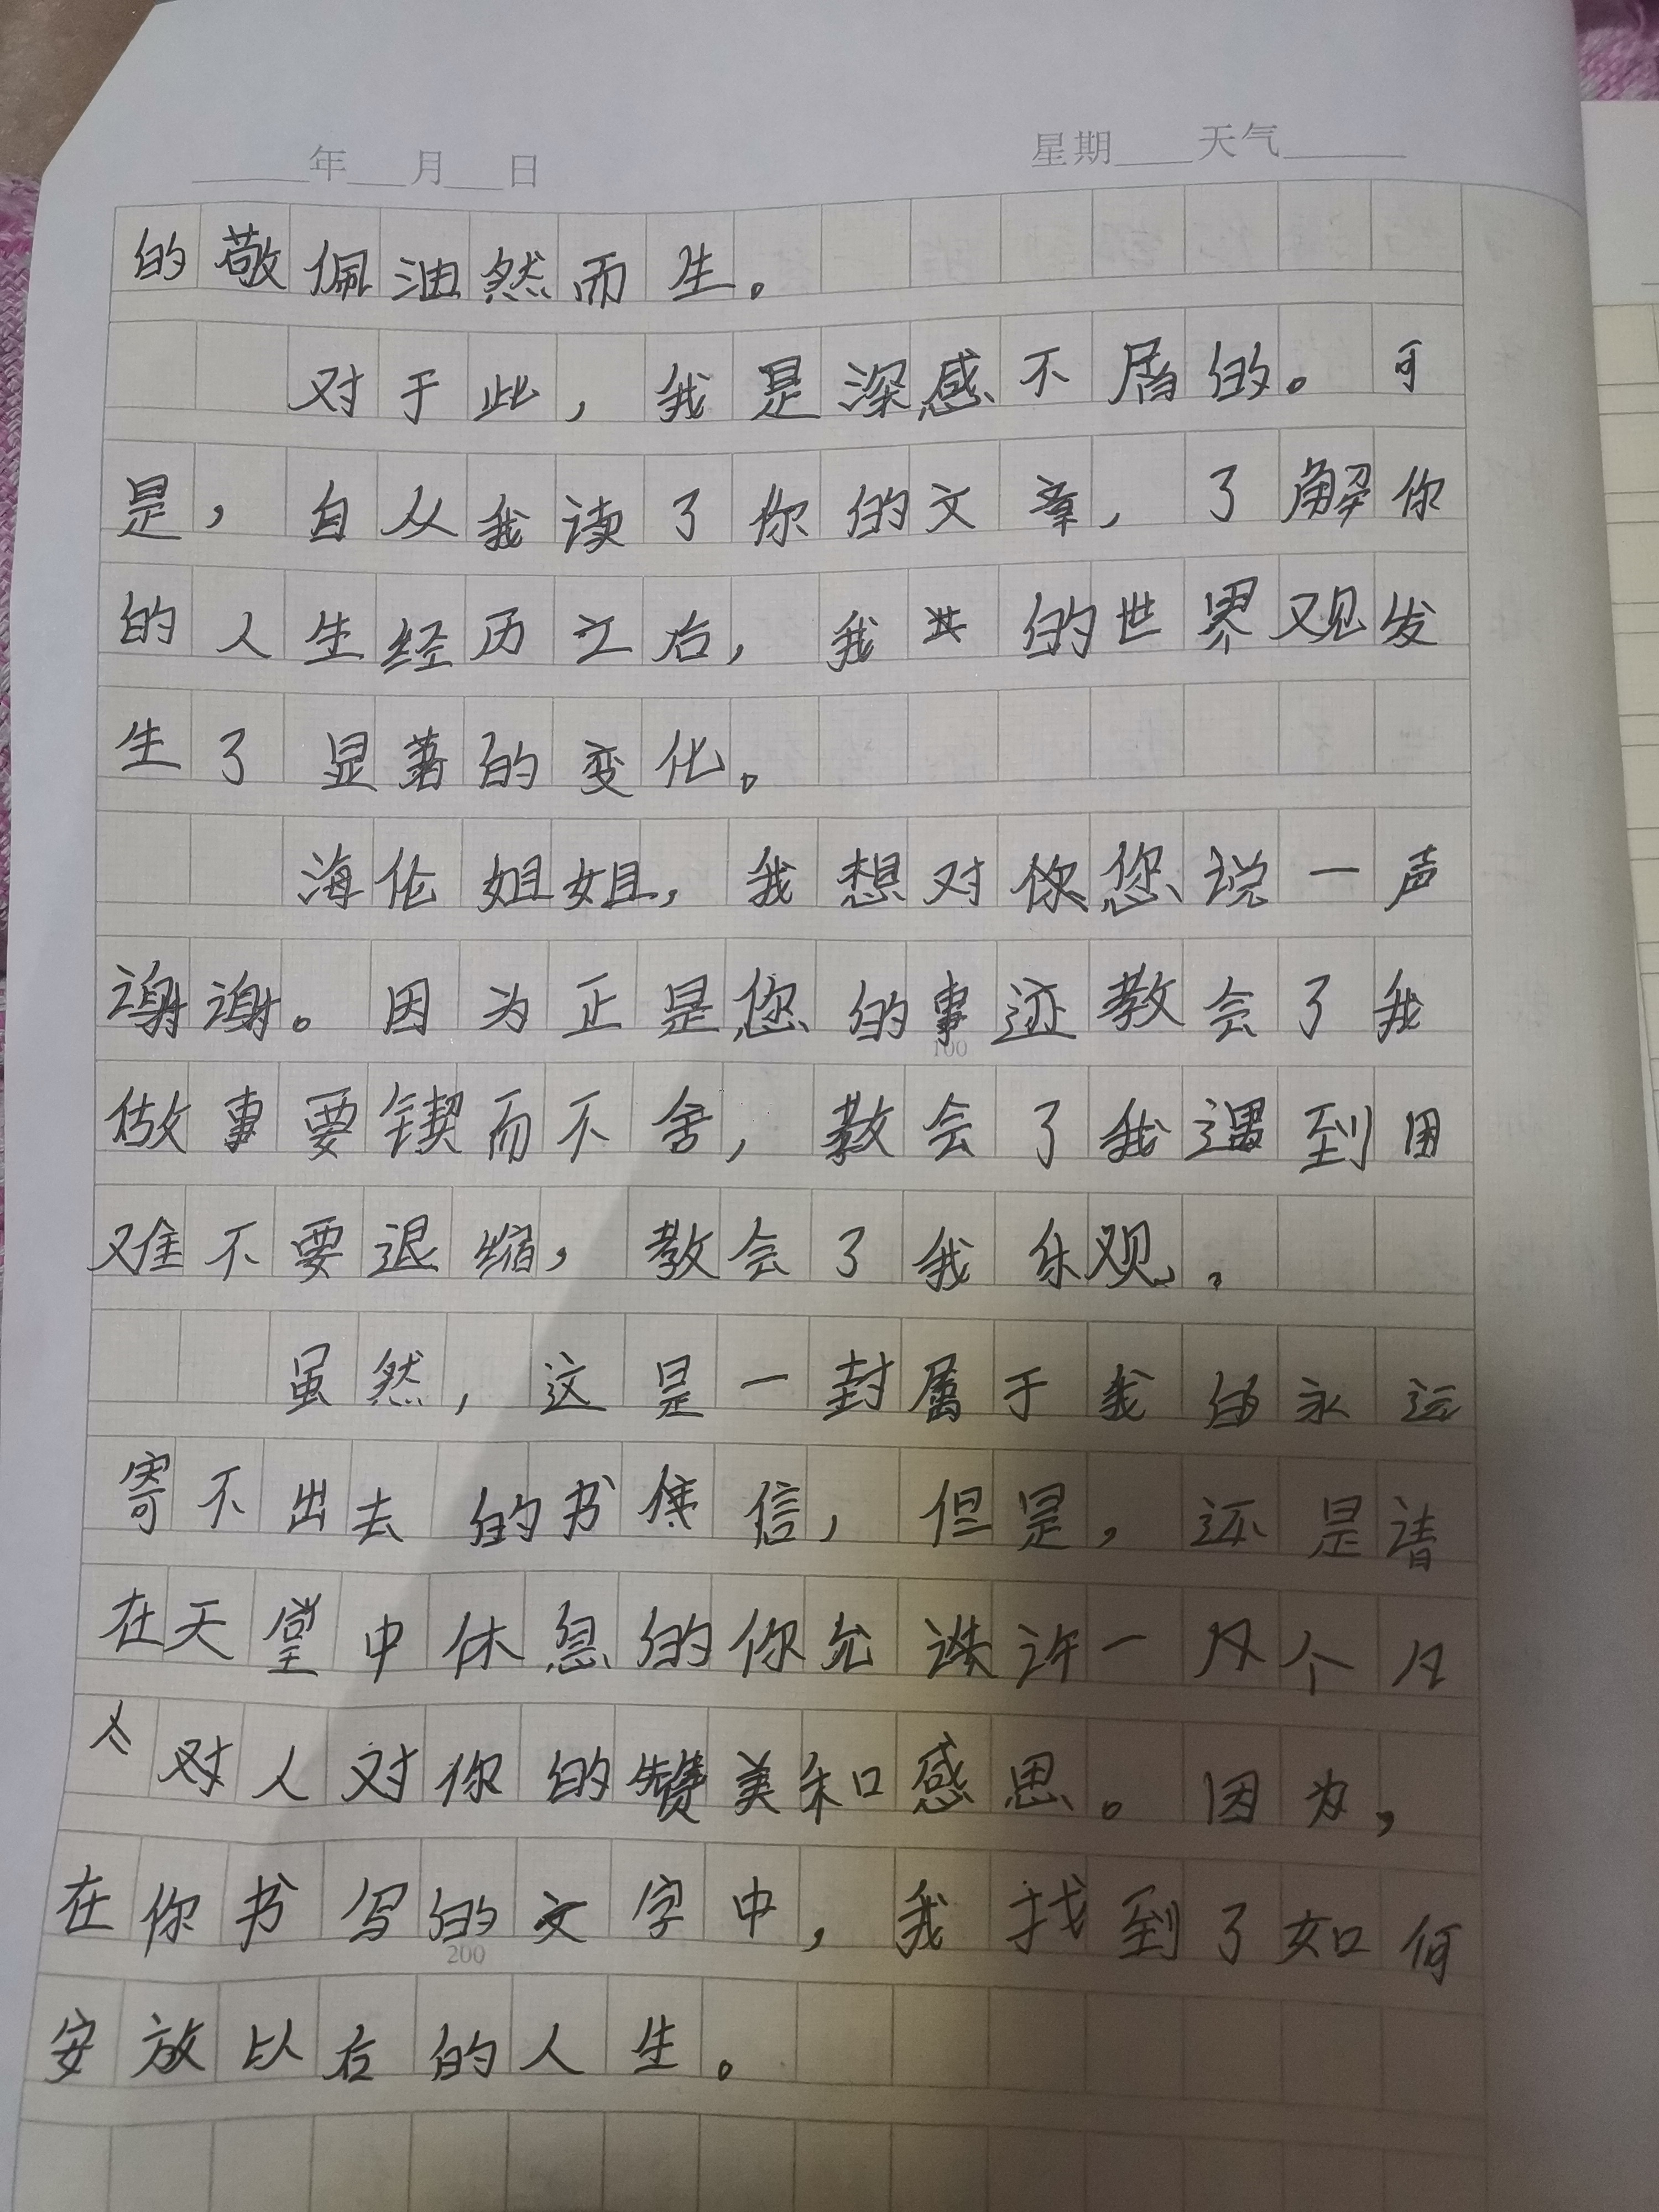 年 月 日 星期 天气
的敬佩油然而生。
对于此，我是深感不屑的。可
是，自从我读了你的文章，了解你
的人生经历之后，我的世界观发
生了显著的变化。
海伦姐姐，我想对你您说一声
谢谢。因为正是您的事迹教会了我
100
做事要锲而不舍，教会了我遇到困
难不要退缩，教会了我乐观。
虽然，这是一封属于我的永远
寄不出去的书信，但是，还是请
在天堂中休息的你允许一个凡
人对你的赞美和感恩。因为，
在你书写的文字中，我找到了如何
200
安放以后的人生。